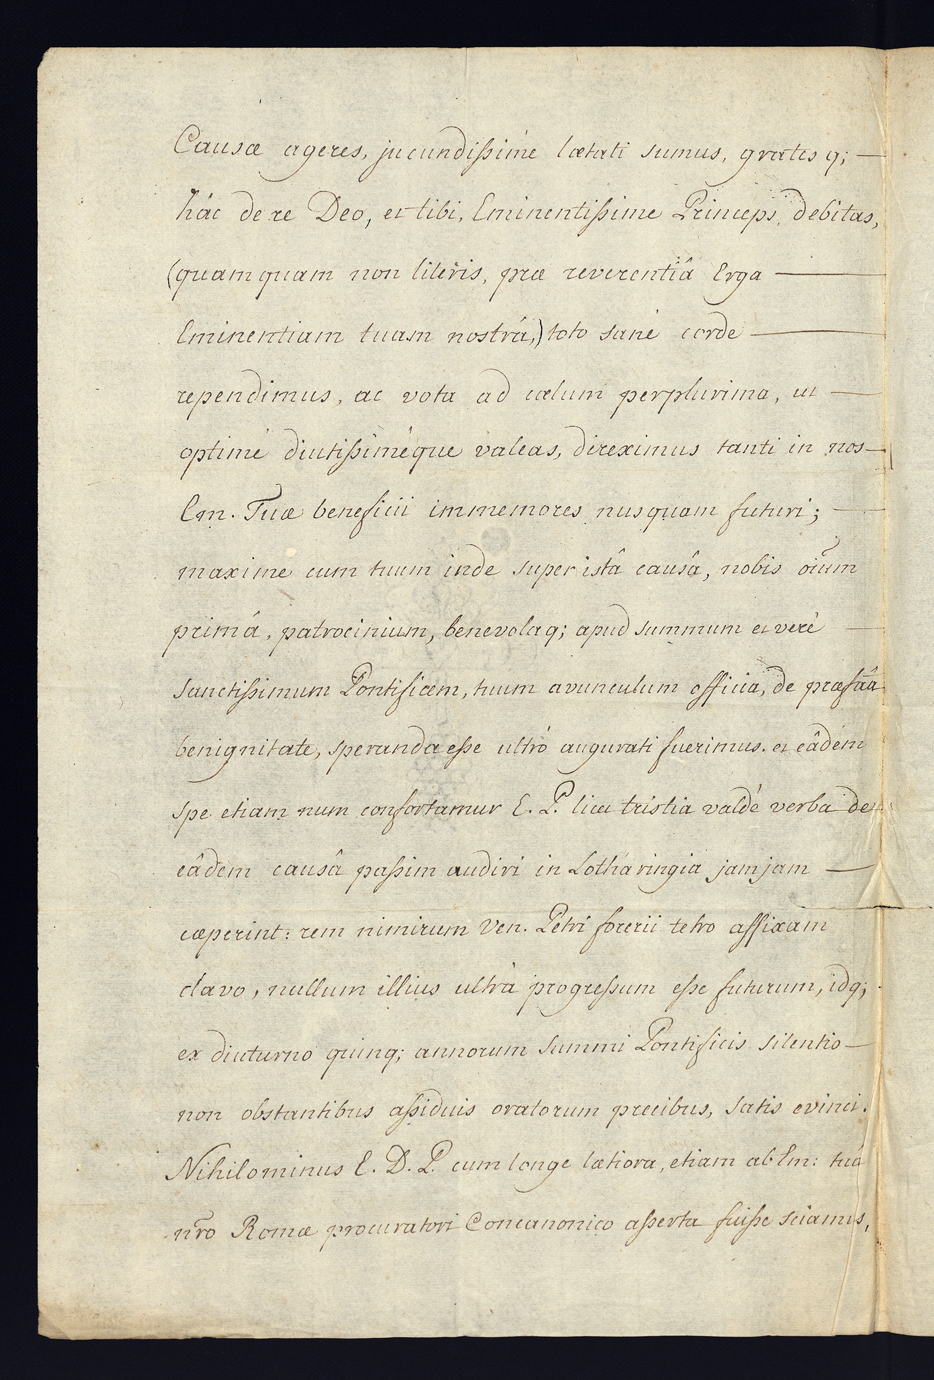 Causæ ageres, jucundißimè lætati sumus, gratesq; —
hâc de re Deo, et tibi, Eminentißime Princeps, debitas,
(quamquam non literis, præ reverentiâ Erga —
Eminentiam tuam nostrâ,) toto sanè corde —
rependimus, ac vota ad cælum perplurima, ut —
optimè diutißimèque valeas, direximus tanti in nos —
Em. Tuæ beneficii immemores nusquam futuri; —
maxime cum tuum inde super istâ causâ, nobis oĩum
primâ, patrocinium, benevolaq; apud summum et verè —
sanctißimum Pontificem, tuum avunculum officia, de præfatâ
benignitate, speranda eße ultrò augurati fuerimus. et eâdem
spe etiam num confortamur E. P. licet tristia valdè verba de
eâdem causâ paßim audiri in Lotharingia jamjam —
cœperint: rem nimirum Ven. Petri forerii tetro affixam
clavo, nullum illius ultrà progreßum eße futurum, idq;
ex diuturno quinq; annorum summi Pontificis silentio —
non obstantibus aßiduis oratorum precibus, satis evinci.
Nihilominus E. D. P. cum longe lætiora, etiam ab Em: tuâ
nr̃o Romæ procuratori Concanonico aßerta fuiße sciamus,